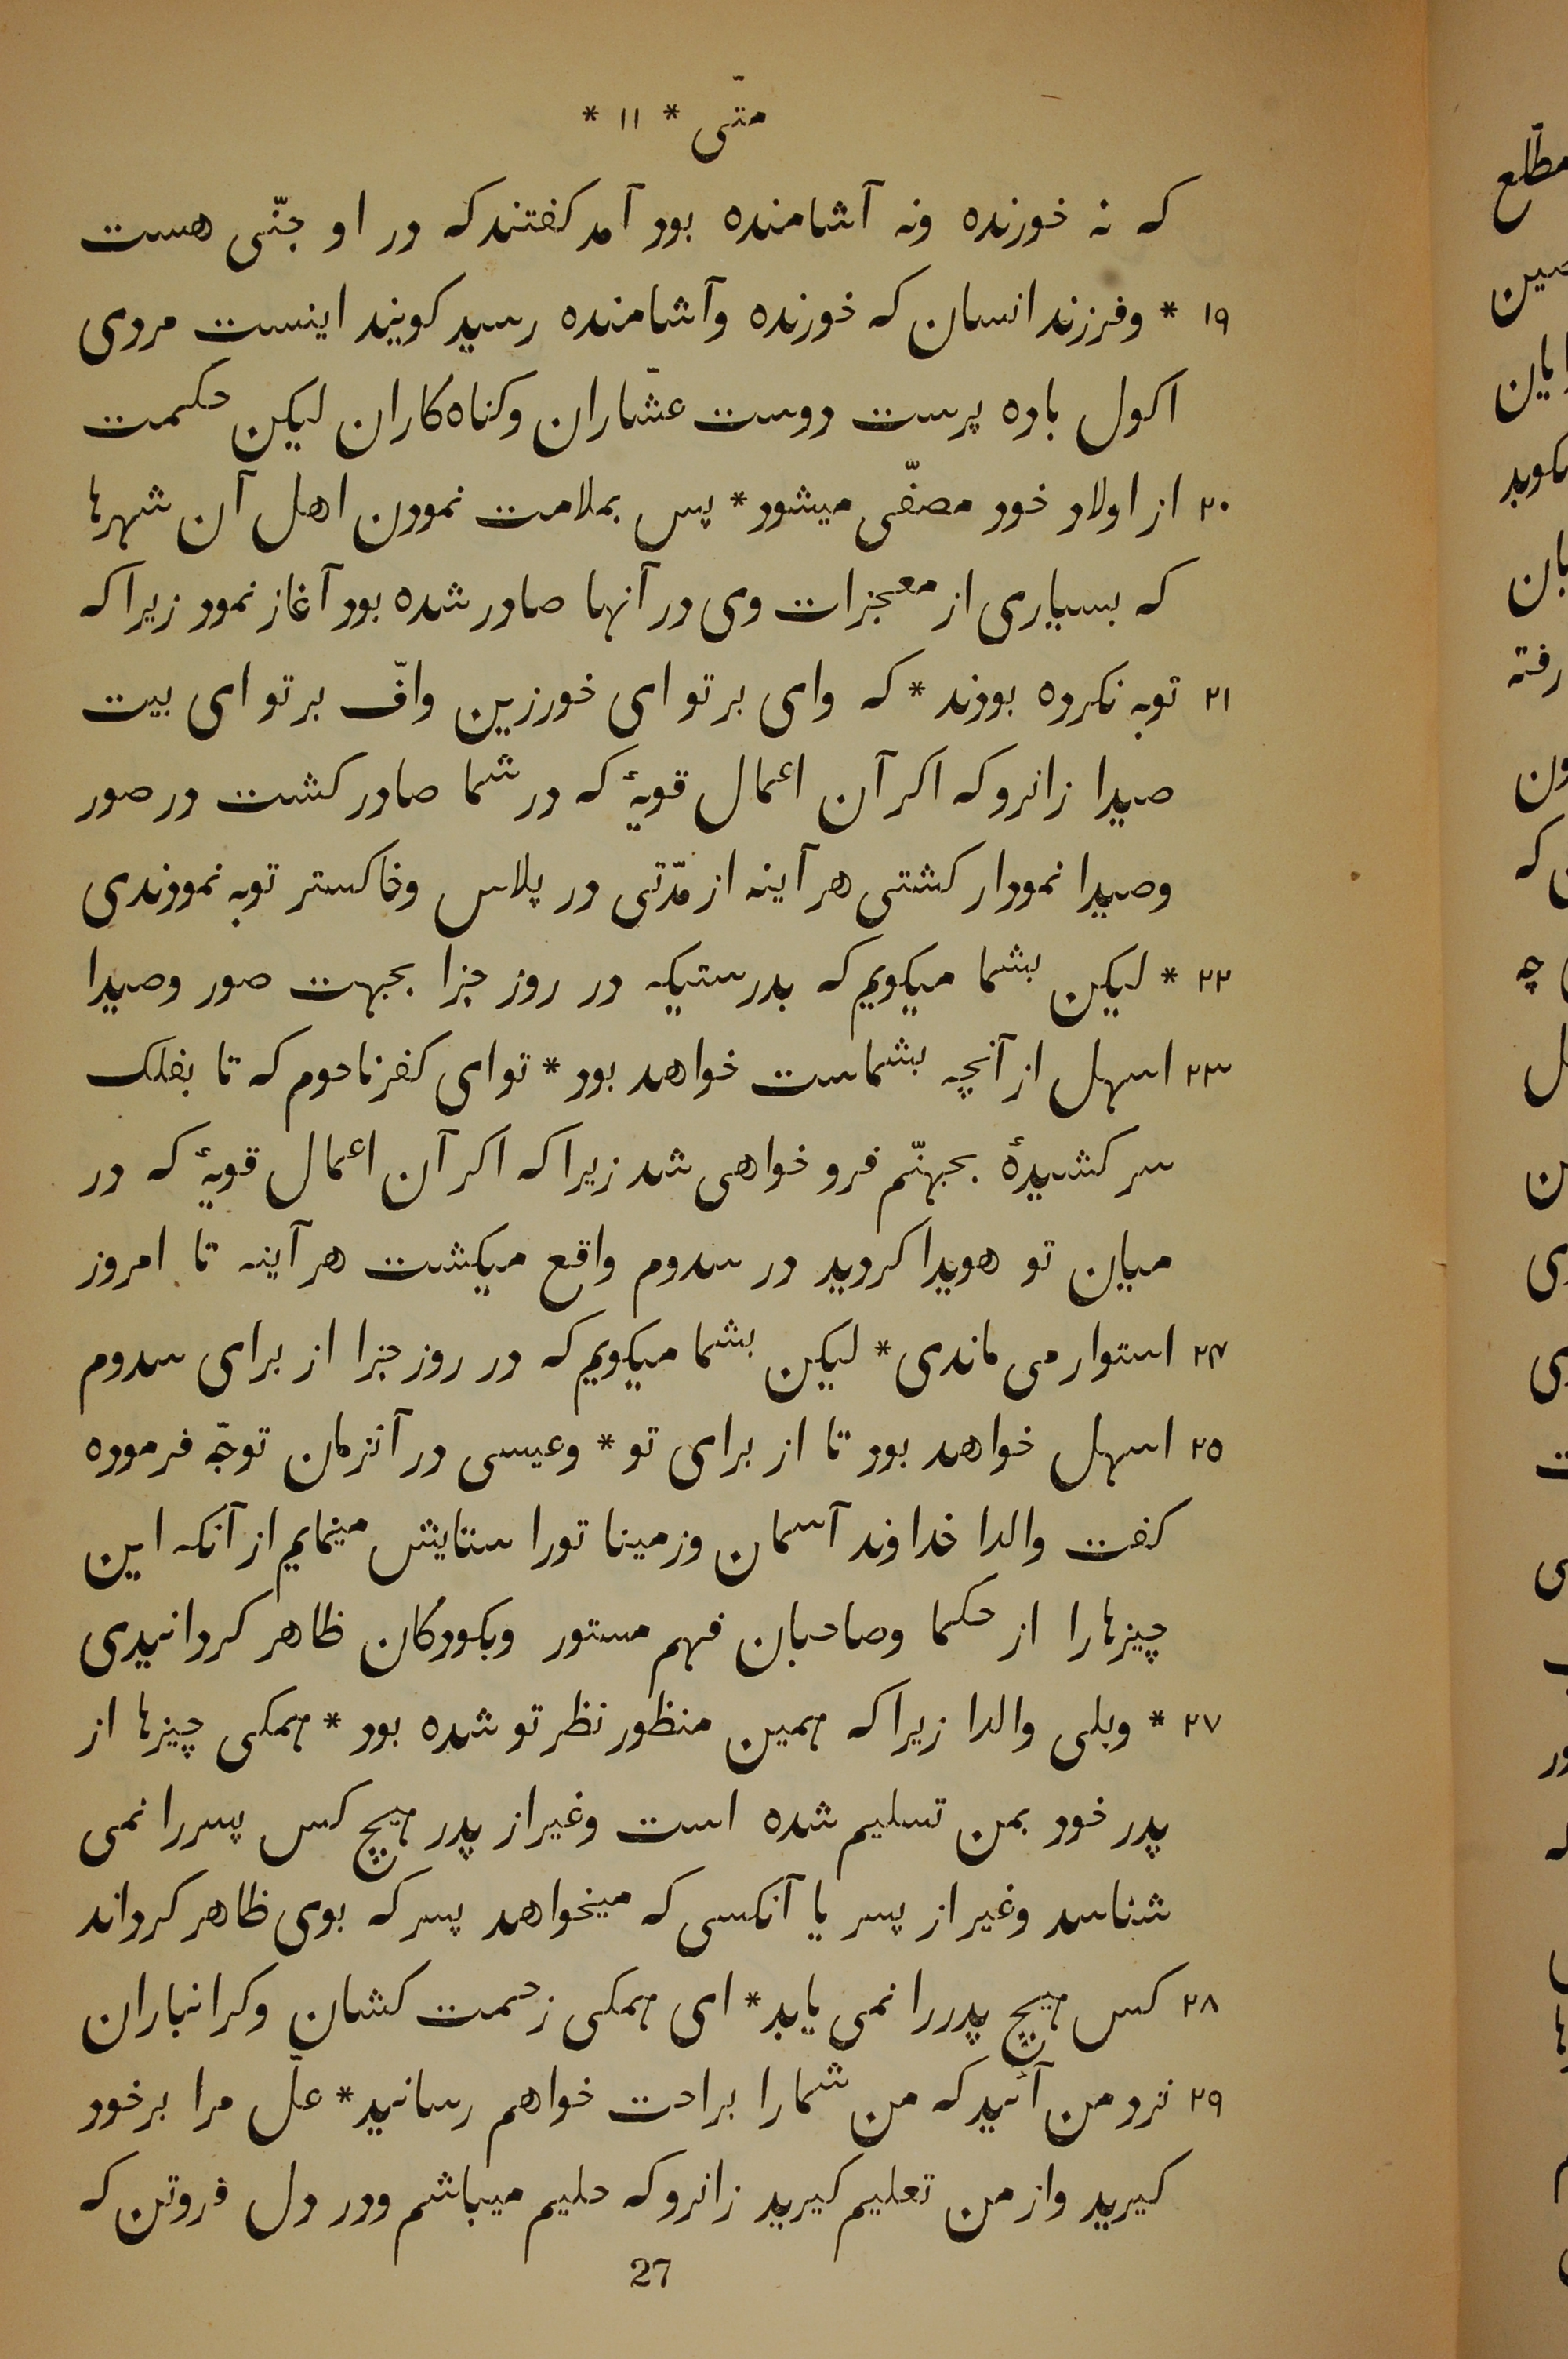 متّی * ۱۱ *
که نه خورنده ونه آشامنده بود آمد کفتند که در او جنّی هست
۱۹ * وفرزند انسان که خورنده وآشامنده رسید کویند اینست مردی
اکول باده پرست دوست عشّاران وکناه‌کاران لیکن حکمت
۲۰ از اولاد خود مصفّی میشود * پس بملامت نمودن اهل آن شهرها
که بسیاری از معجزات وی در آنها صادر شده بود آغاز نمود زیرا که
۲۱ توبه نکرده بودند * که وای بر تو ای خورزین وافّ بر تو ای بیت
صیدا زانرو که اکر آن اعمال قویهٔ که در شما صادر کشت در صور
وصیدا نمودار کشتی هر آینه از مدّتی در پلاس وخاکستر توبه نمودندی
۲۲ * لیکن بشما میکویم که بدرستیکه در روز جزا بجهت صور وصیدا
۲۳ اسهل از آنچه بشماست خواهد بود * تو ای کفرناحوم که تا بفلک
سر کشیدهٔ بجهنّم فرو خواهی شد زیرا که اکر آن اعمال قویهٔ که در
میان تو هویدا کردید در سدوم واقع میکشت هر آینه تا امروز
۲۴ استوار می ماندی * لیکن بشما میکویم که در روز جزا از برای سدوم
۲۵ اسهل خواهد بود تا از برای تو * وعیسی در آنزمان توجّه فرموده
کفت والدا خداوند آسمان وزمینا تورا ستایش مینمایم از آنکه این
چیزها را از حکما وصاحبان فهم مستور وبکودکان ظاهر کردانیدی
۲۷ * وبلی والدا زیرا که همین منظور نظر تو شده بود * همکی چیزها از
پدر خود بمن تسلیم شده است وغیر از پدر هیچ کس پسررا نمی
شناسد وغیر از پسر یا آنکسی که میخواهد پسر که بوی ظاهر کرداند
۲۸ کس هیچ پدررا نمی یابد * ای همکی زحمت کشان وکرانباران
۲۹ نزد من آئید که من شمارا براحت خواهم رسانید * علّ مرا برخود
کیرید واز من تعلیم کیرید زانرو که حلیم میباشم ودر دل فروتن که
27
مطّلع
رفته